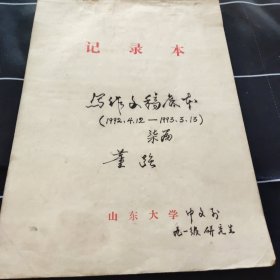 记录本
写作文稿底本
(1992.4.12—1993.5.15)
董
山东大学 中文系
九一级研究生